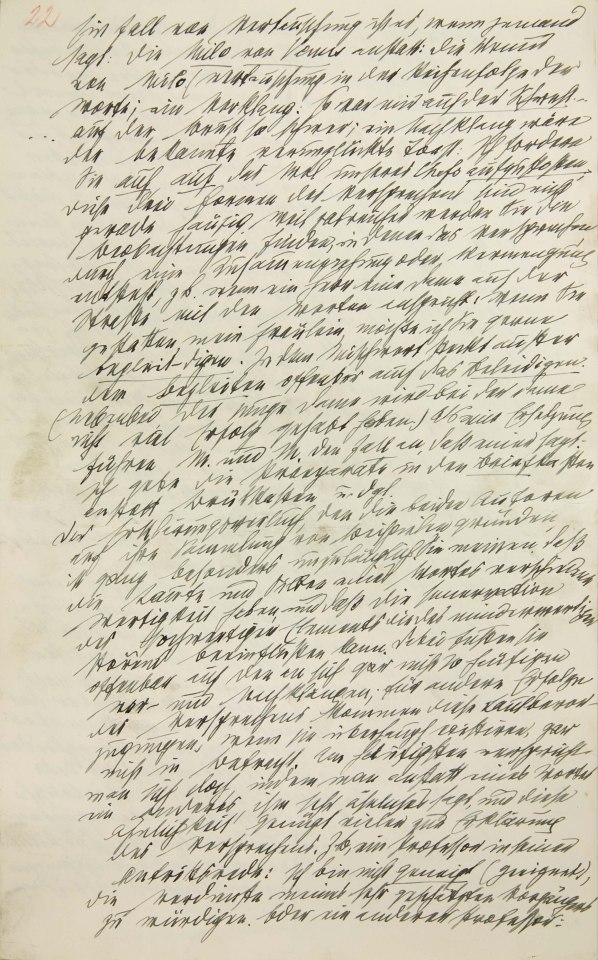 22
Ein Fall von Vertauschung ist es, wenn jemand
sagt: die Milo von Venus anstatt: die Venus
von Milo (Vertauschung in der Reihenfolge der
Worte); ein Vorklang: Es war mir auf der Schwest..
auf der Brust so schwer; ein Nachklang wäre
der bekannte verunglückte Toast. Ich fordere
Sie auf, auf das Wol unseres Chefs aufzustoßen.
Diese drei Formen des Versprechens sind nicht
gerade häufig. Weit zahlreicher werden Sie die
Beobachtungen finden, in denen das Versprechen
durch eine Zusammenziehung oder Vermengung
entsteht, zB. wenn ein Herr eine Dame auf der
Straße mit den Worten anspricht: Wenn Sie
gestatten, mein Fräulein, möchte ich Sie gerne
begleit-digen. In dem Mischwort steckt außer
dem Begleiten offenbar auch das Beleidigen.
(Nebenbei der junge Mann wird bei der Dame
nicht viel Erfolg gehabt haben.) Als eine Ersetzung
führen M. und M. den Fall an, daß einer sagt:
ich gebe die Praeparate in den Briefkasten
anstatt Brütkasten u. dgl.
Der Erklärungsversuch, den die beiden Autoren
auf ihre Sammlung von Beispielen gründen
ist ganz besonders unzulänglich. Sie meinen, daß
die Laute und Silben eines Wortes verschiedene
Wertigkeit haben und daß die Innervation
des hochwertigen Elements die des minderwertigen
störend beeinflußen kann. Dabei fußen sie
offenbar auf den an sich gar nicht so häufigen
Vor- und Nachklängen; für andere Erfolge
des Versprechens kommen diese Lautbevor-
zugungen, wenn sie überhaupt existiren, gar
nicht in Betracht. Am häufigsten verspricht
man sich doch, indem man anstatt eines Wortes
ein anderes, ihm sehr ähnliches sagt, und diese
Ähnlichkeit genügt vielen zur Erklärung
des Versprechens. ZB. ein Professor in seiner
Antrittsrede: Ich bin nicht geneigt (geeignet),
die Verdienste meines sehr geschätzten Vorgängers
zu würdigen. Oder ein anderer Professor: